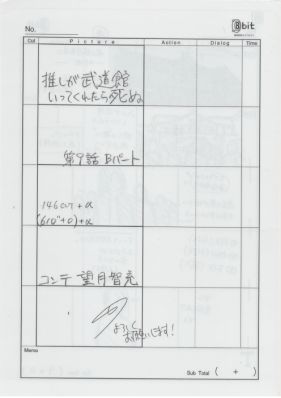 No.
8bit
Cut Picture Action Dialog Time
推しが武道館
いってくれたら死ぬ
第9話 Bパート
146cut+α
(610"+0)+α
コンテ 望月智充
よろしく
お願いします!
Memo
Sub Total ( + )